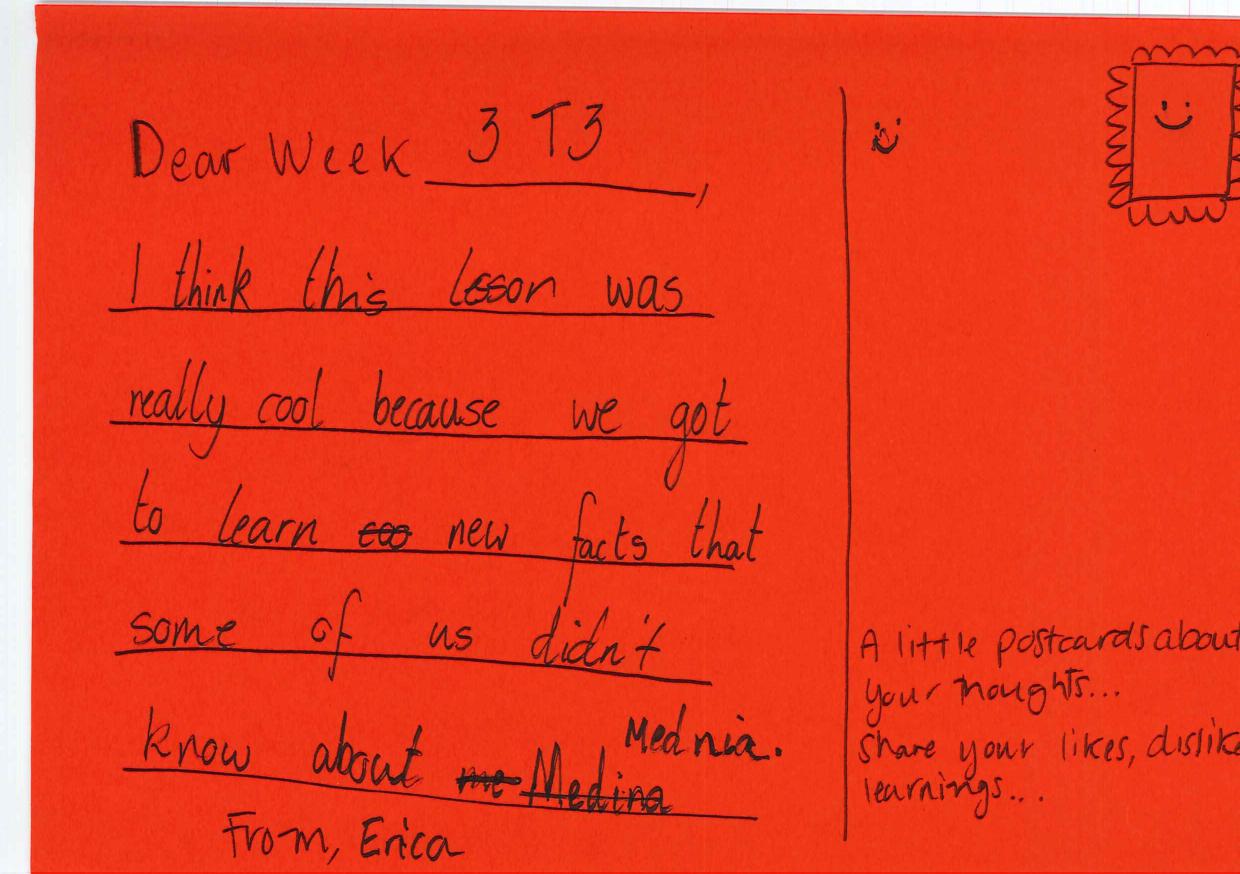 Dear Week 3 T3,
I think this lesson was
really cool because we got
to learn new facts that
some of us didn't
know about Medina
Mednia.
From, Erica
A little postcards about
your thoughts...
Share your likes, dislike
learnings...